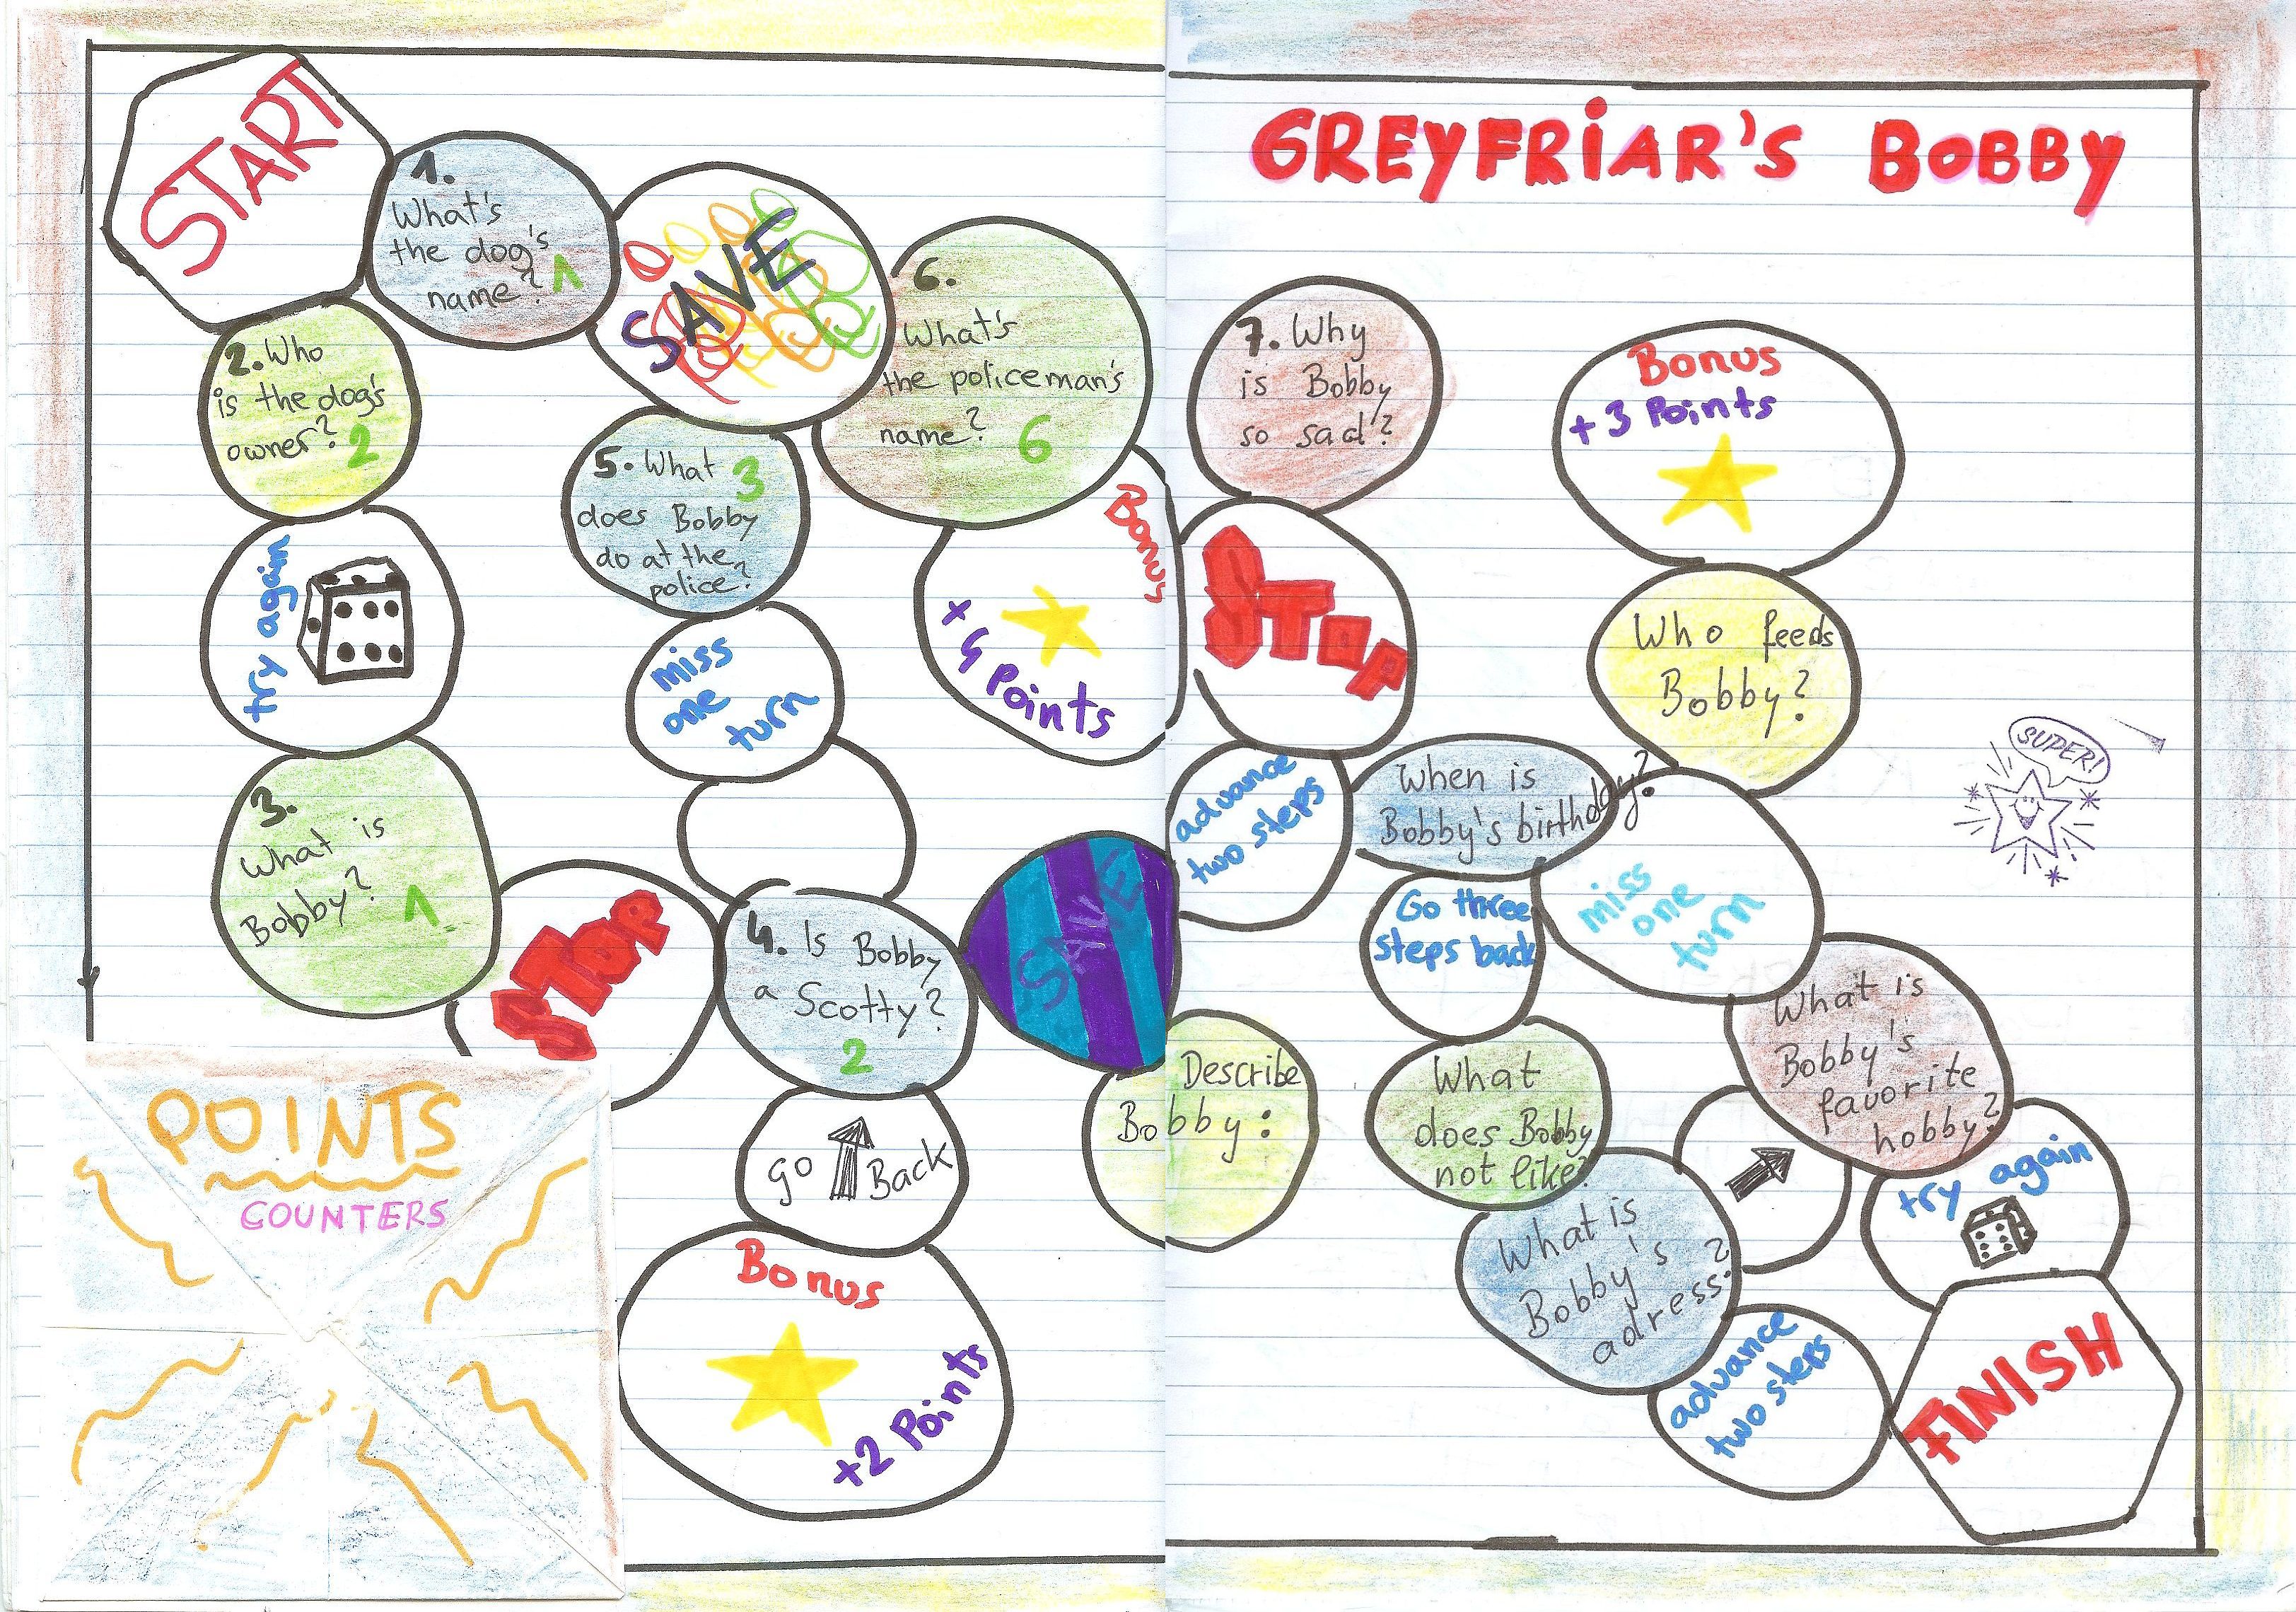 START
1.
What's
the dog's
name? 1
SAVE
2. Who
is the dog's
owner? 2
try again
3.
What is
Bobby? 1
STOP
4. Is Bobby
a Scotty?
2
go Back
Bonus
+2 Points
5. What 3
does Bobby
do at the
police?
miss
one
turn
6.
What's
the policeman's
name? 6
Bonus
+ 4 Points
SAVE
POINTS
COUNTERS
GREYFRIAR'S BOBBY
7. Why
is Bobby
so sad?
STOP
advance
two steps
Describe
Bobby:
When is
Bobby's birthday?
Go three
steps back
What
does Bobby
not like?
What is
Bobby's
adress?
advance
two steps
Bonus
+ 3 Points
Who feeds
Bobby?
miss
one
turn
What is
Bobby's
favorite
hobby?
try again
FINISH
SUPER!